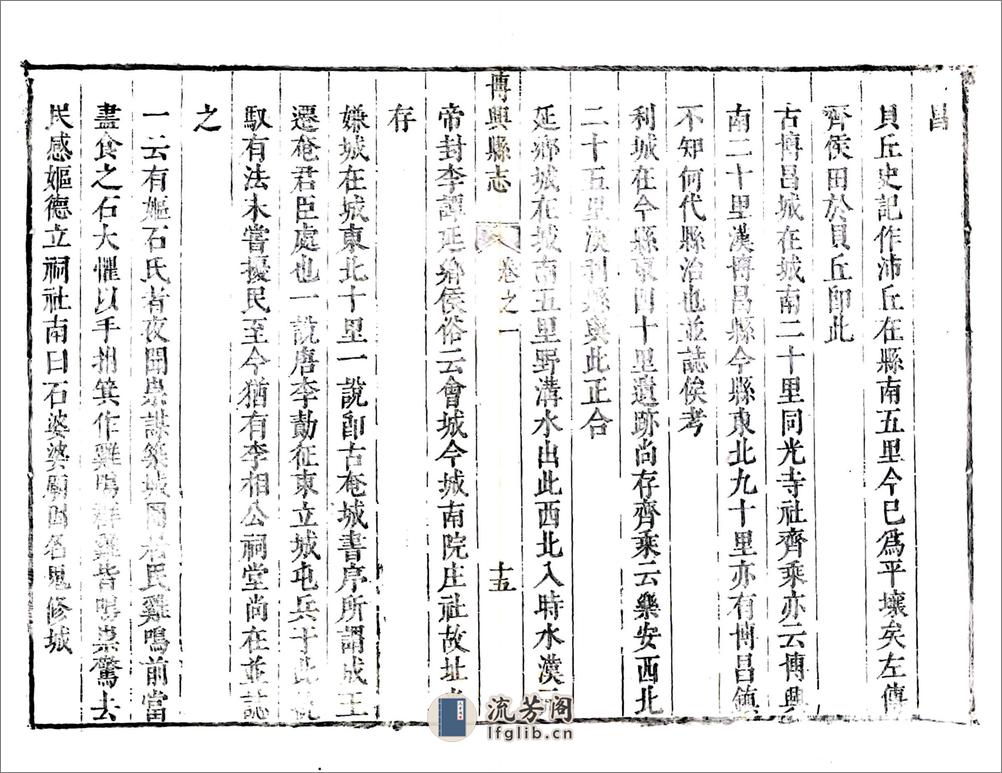 昌
貝丘史記作沛丘在縣南五里今已爲平壤矣左傳
齊侯田於貝丘即此
古博昌城在城南二十里同光寺社齊乘亦云博興
南二十里漢博昌縣今縣東北九十里亦有博昌鎮
不知何代縣治也並誌俟考
利城在今縣東四十里遺跡尚存齊乘云樂安西北
二十五里漢利縣與此正合
延鄉城在城南五里野溝水出此西北入時水漢
博興縣志
卷之一
十五
帝封李譚延鄉侯俗云會城今城南院庄社故址
存
嫌城在城東北十里一說即古奄城書序所謂成王
遷奄君臣處也一說唐李勣征東立城屯兵于此
馭有法未嘗擾民至今猶有李相公祠堂尚在並誌
之
一云有嫗石氏者夜聞祟謀築城 民雞鳴前當
盡食之石大懼以手拊箕作雞鳴群雞皆鳴祟驚去
民感嫗德立祠社南曰石婆婆廟因名鬼修城
流芳阁
lfglib.cn